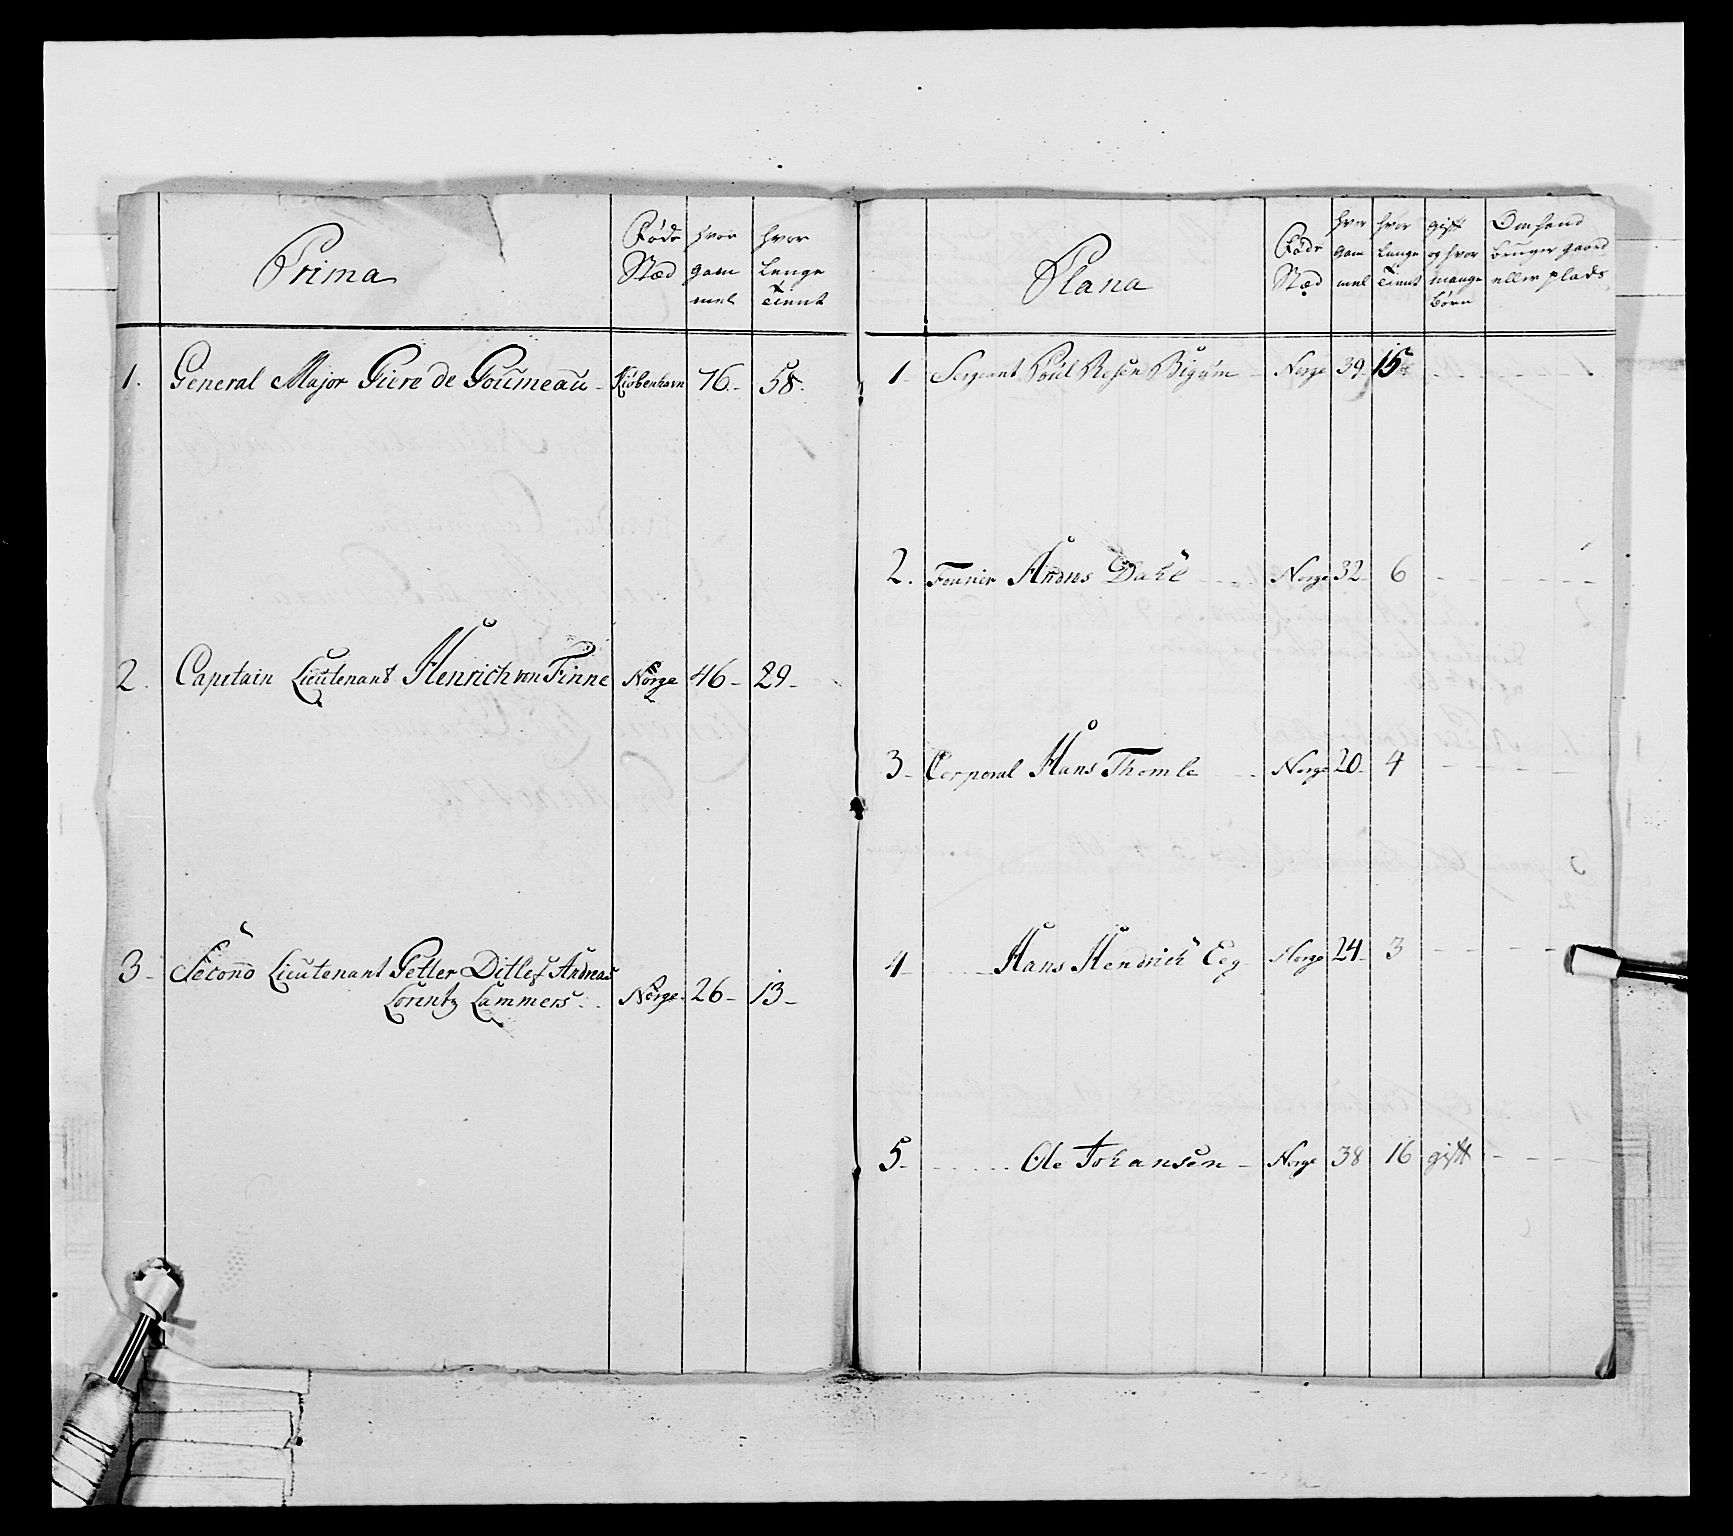 Prima
Føde Stæd
hvor gam mel
hvor lenge Tient
1. General Major Giere de Goumeau - Kiøbenhavn 76 - 58.
2. Capitain Lieutenant Henrich von Finne Norge 46 - 29 -
3 - Second Lieutenant Petter Ditlef Andreas
Lorentz Lammers - Norge - 26 - 13 -
Plana
Føde Stæd
hvor gam mel
hvor lenge Tient
gift og hvor mange børn
Om hand bruger gaard eller plads
1 - Sergeant Poul Resen Bigum - Norge 39 - 15
2. Fourier Andres Dahl - - Norge 32 - 6 - - - - -
3 - Corporal Hans Thomle - - Norge 20 - 4 - - - - -
4 - - Hans Hendrich Eeg - Norge 24 - 3 - - - -
5 - - - - Ole Johansen - Norge 38 16 gift - - - -